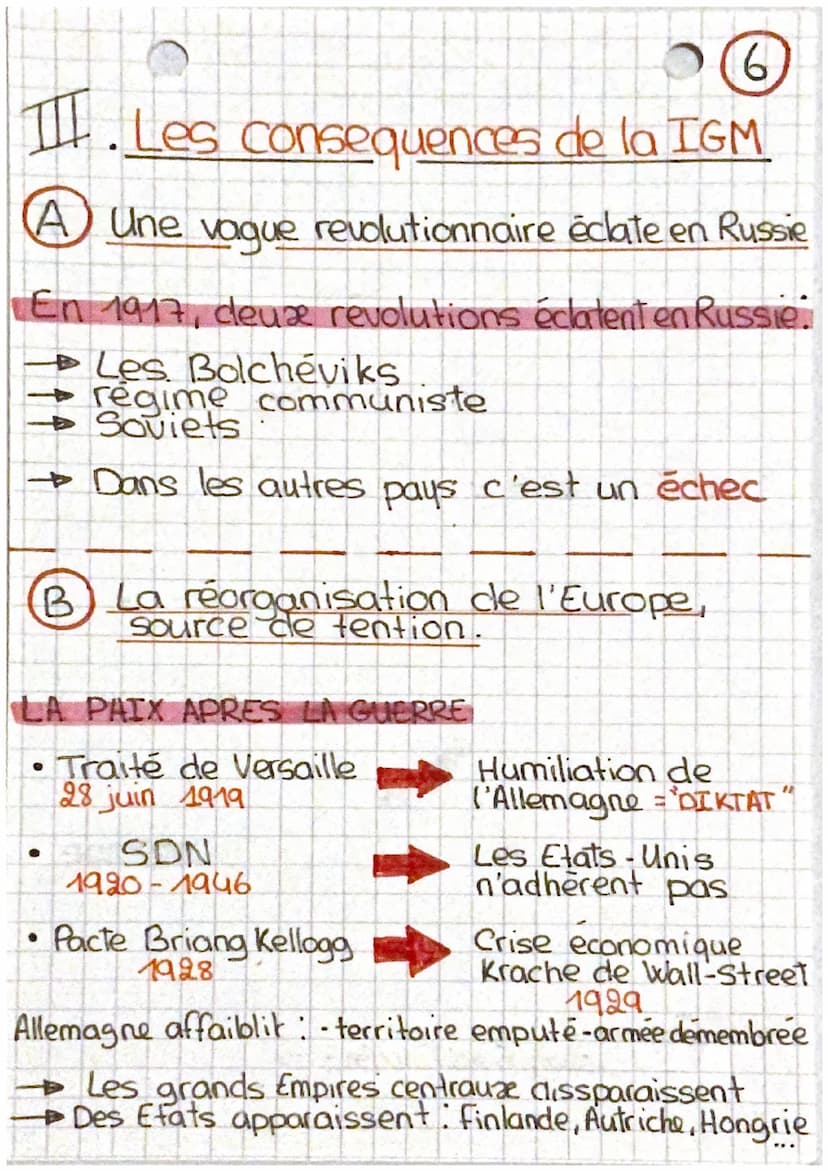 6
III. Les consequences de la IGM
A Une vague revolutionnaire éclate en Russie
En 1917, deux revolutions éclatent en Russie:
→ Les Bolchéviks
→ régime communiste
→ Soviets
→ Dans les autres pays c'est un échec
B La réorganisation de l'Europe,
source de tention.
LA PAIX APRES LA GUERRE
• Traité de Versaille → Humiliation de
28 juin 1919 l'Allemagne = "DIKTAT"
• SDN → Les Etats-Unis
1920-1946 n'adhèrent pas
• Pacte Briang Kellogg → Crise économique
1928 Krache de Wall-Street
1929
Allemagne affaiblit : - territoire emputé - armée démembrée
→ Les grands Empires centraux dissparaissent
→ Des Etats apparaissent : Finlande, Autriche, Hongrie...